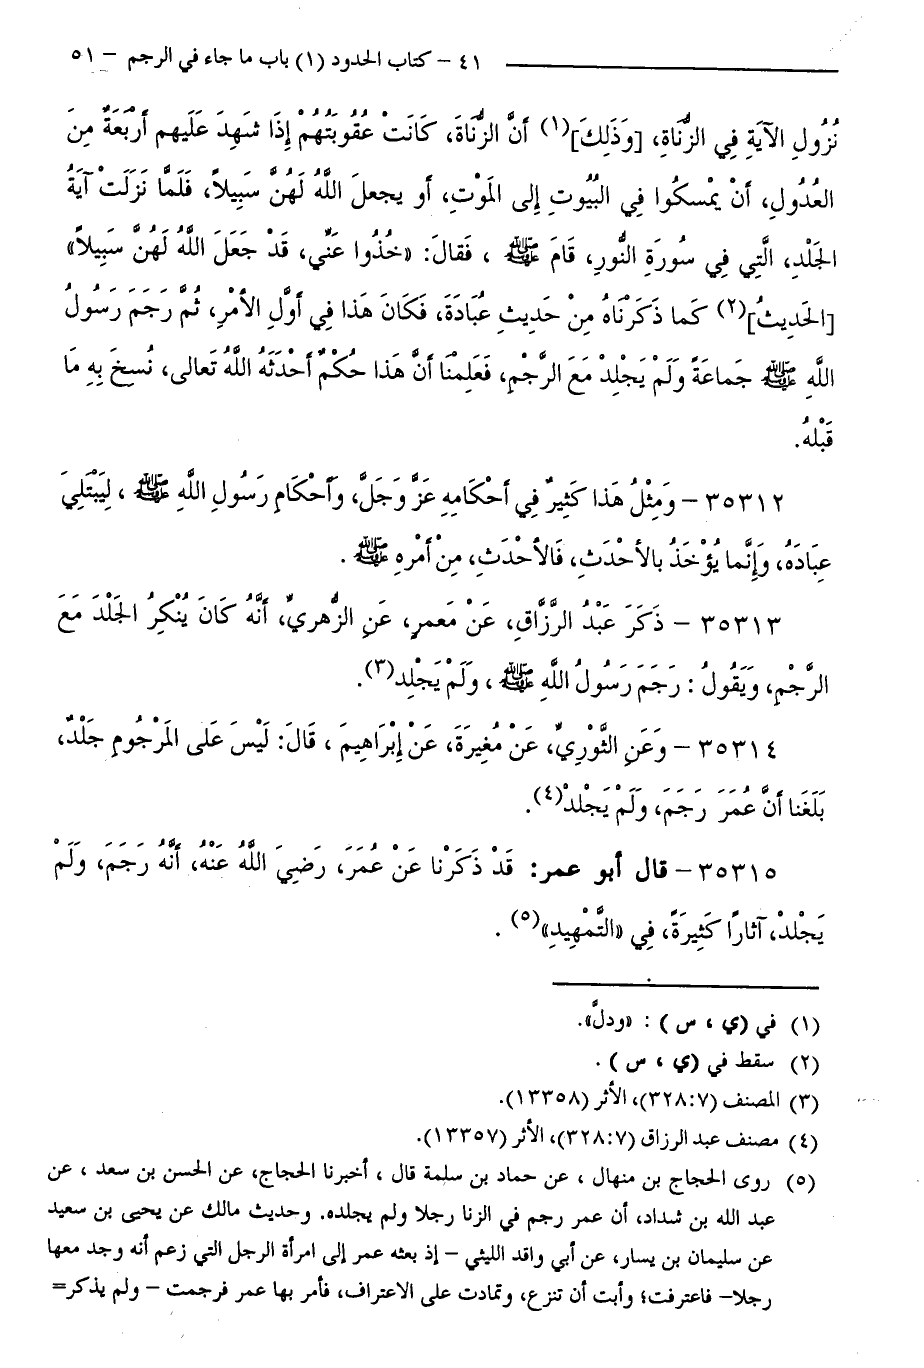 ٤١ – كتاب الحدود (١) باب ما جاء في الرجم – ٥١
نُزُولِ الآيَةِ فِي الزُّنَاةِ، [وَذَلِكَ](١) أَنَّ الزُّنَاةَ، كَانَتْ عُقُوبَتُهُمْ إِذَا شَهِدَ عَلَيهم أَرْبَعَةٌ مِنَ
العُدُولِ، أَنْ يمْسكُوا فِي البُيُوتِ إِلى المَوْتِ، أو يجعلَ اللَّهُ لَهُنَّ سَبِيلاً، فَلَمَّا نَزَلَتْ آيَةُ
الجَلْدِ، الَّتِي فِي سُورَةِ النُّورِ، قَامَ ﷺ ، فَقالَ: «خُذُوا عَنِّي، قَدْ جَعَلَ اللَّهُ لَهُنَّ سَبِيلاً»
[الحَدِيثُ](٢) كَما ذَكَرْنَاهُ مِنْ حَدِيثِ عُبَادَةَ، فَكَانَ هَذا فِي أَوَّلِ الأَمْرِ، ثُمَّ رَجَمَ رَسُولُ
اللَّهِ ﷺ جَماعَةً وَلَمْ يَجْلِدْ مَعَ الرَّجْمِ، فَعَلِمْنَا أَنَّ هَذا حُكْمٌ أَحْدَثَهُ اللَّهُ تَعالى، نُسخَ بِهِ مَا
قَبْلهُ.
٣٥٣١٢ – وَمِثْلُ هَذا كَثِيرٌ فِي أَحْكَامِهِ عَزَّ وَجَلَّ، وَأَحْكَامِ رَسُولِ اللَّهِ ﷺ ، لِيَبْتَلِيَ
عِبَادَهُ، وَإِنَّما يُؤْخَذُ بالأَحْدَثِ، فَالأَحْدَثِ، مِنْ أَمْرِهِ ﷺ .
٣٥٣١٣ – ذَكَرَ عَبْدُ الرَّزَّاقِ، عَنْ مَعمرٍ، عَنِ الزُّهريِّ، أَنَّهُ كَانَ يُنْكِرُ الجَلْدَ مَعَ
الرَّجْمِ، وَيَقُولُ : رَجَمَ رَسُولُ اللَّهِ ﷺ ، وَلَمْ يَجْلِد(٣).
٣٥٣١٤ – وَعَنِ الثَّوْرِيِّ، عَنْ مُغِيرَةَ، عَنْ إِبْرَاهِيمَ ، قَالَ: لَيْسَ عَلى المَرْجُومِ جَلْدٌ،
بَلَغَنا أَنَّ عُمَرَ رَجَمَ، وَلَمْ يَجْلدْ(٤).
٣٥٣١٥ – قال أبو عمر: قَدْ ذَكَرْنا عَنْ عُمَرَ، رَضِيَ اللَّهُ عَنْهُ، أَنَّهُ رَجَمَ، وَلَمْ
يَجْلدْ، آثارًا كَثِيرَةً، فِي «التَّمْهِيدِ»(٥) .
(١) في (ي ، س ) : «ودلَّ».
(٢) سقط في (ي ، س ) .
(٣) المصنف (٣٢٨:٧)، الأثر (١٣٣٥٨).
(٤) مصنف عبد الرزاق (٣٢٨:٧)، الأثر (١٣٣٥٧).
(٥) روى الحجاج بن منهال ، عن حماد بن سلمة قال ، أخبرنا الحجاج، عن الحسن بن سعد ، عن
عبد الله بن شداد، أن عمر رجم في الزنا رجلا ولم يجلده. وحديث مالك عن يحيى بن سعيد
عن سليمان بن يسار، عن أبي واقد الليثي – إذ بعثه عمر إلى امرأة الرجل التي زعم أنه وجد معها
رجلا– فاعترفت؛ وأبت أن تنزع، وتمادت على الاعتراف، فأمر بها عمر فرجمت – ولم يذكر=